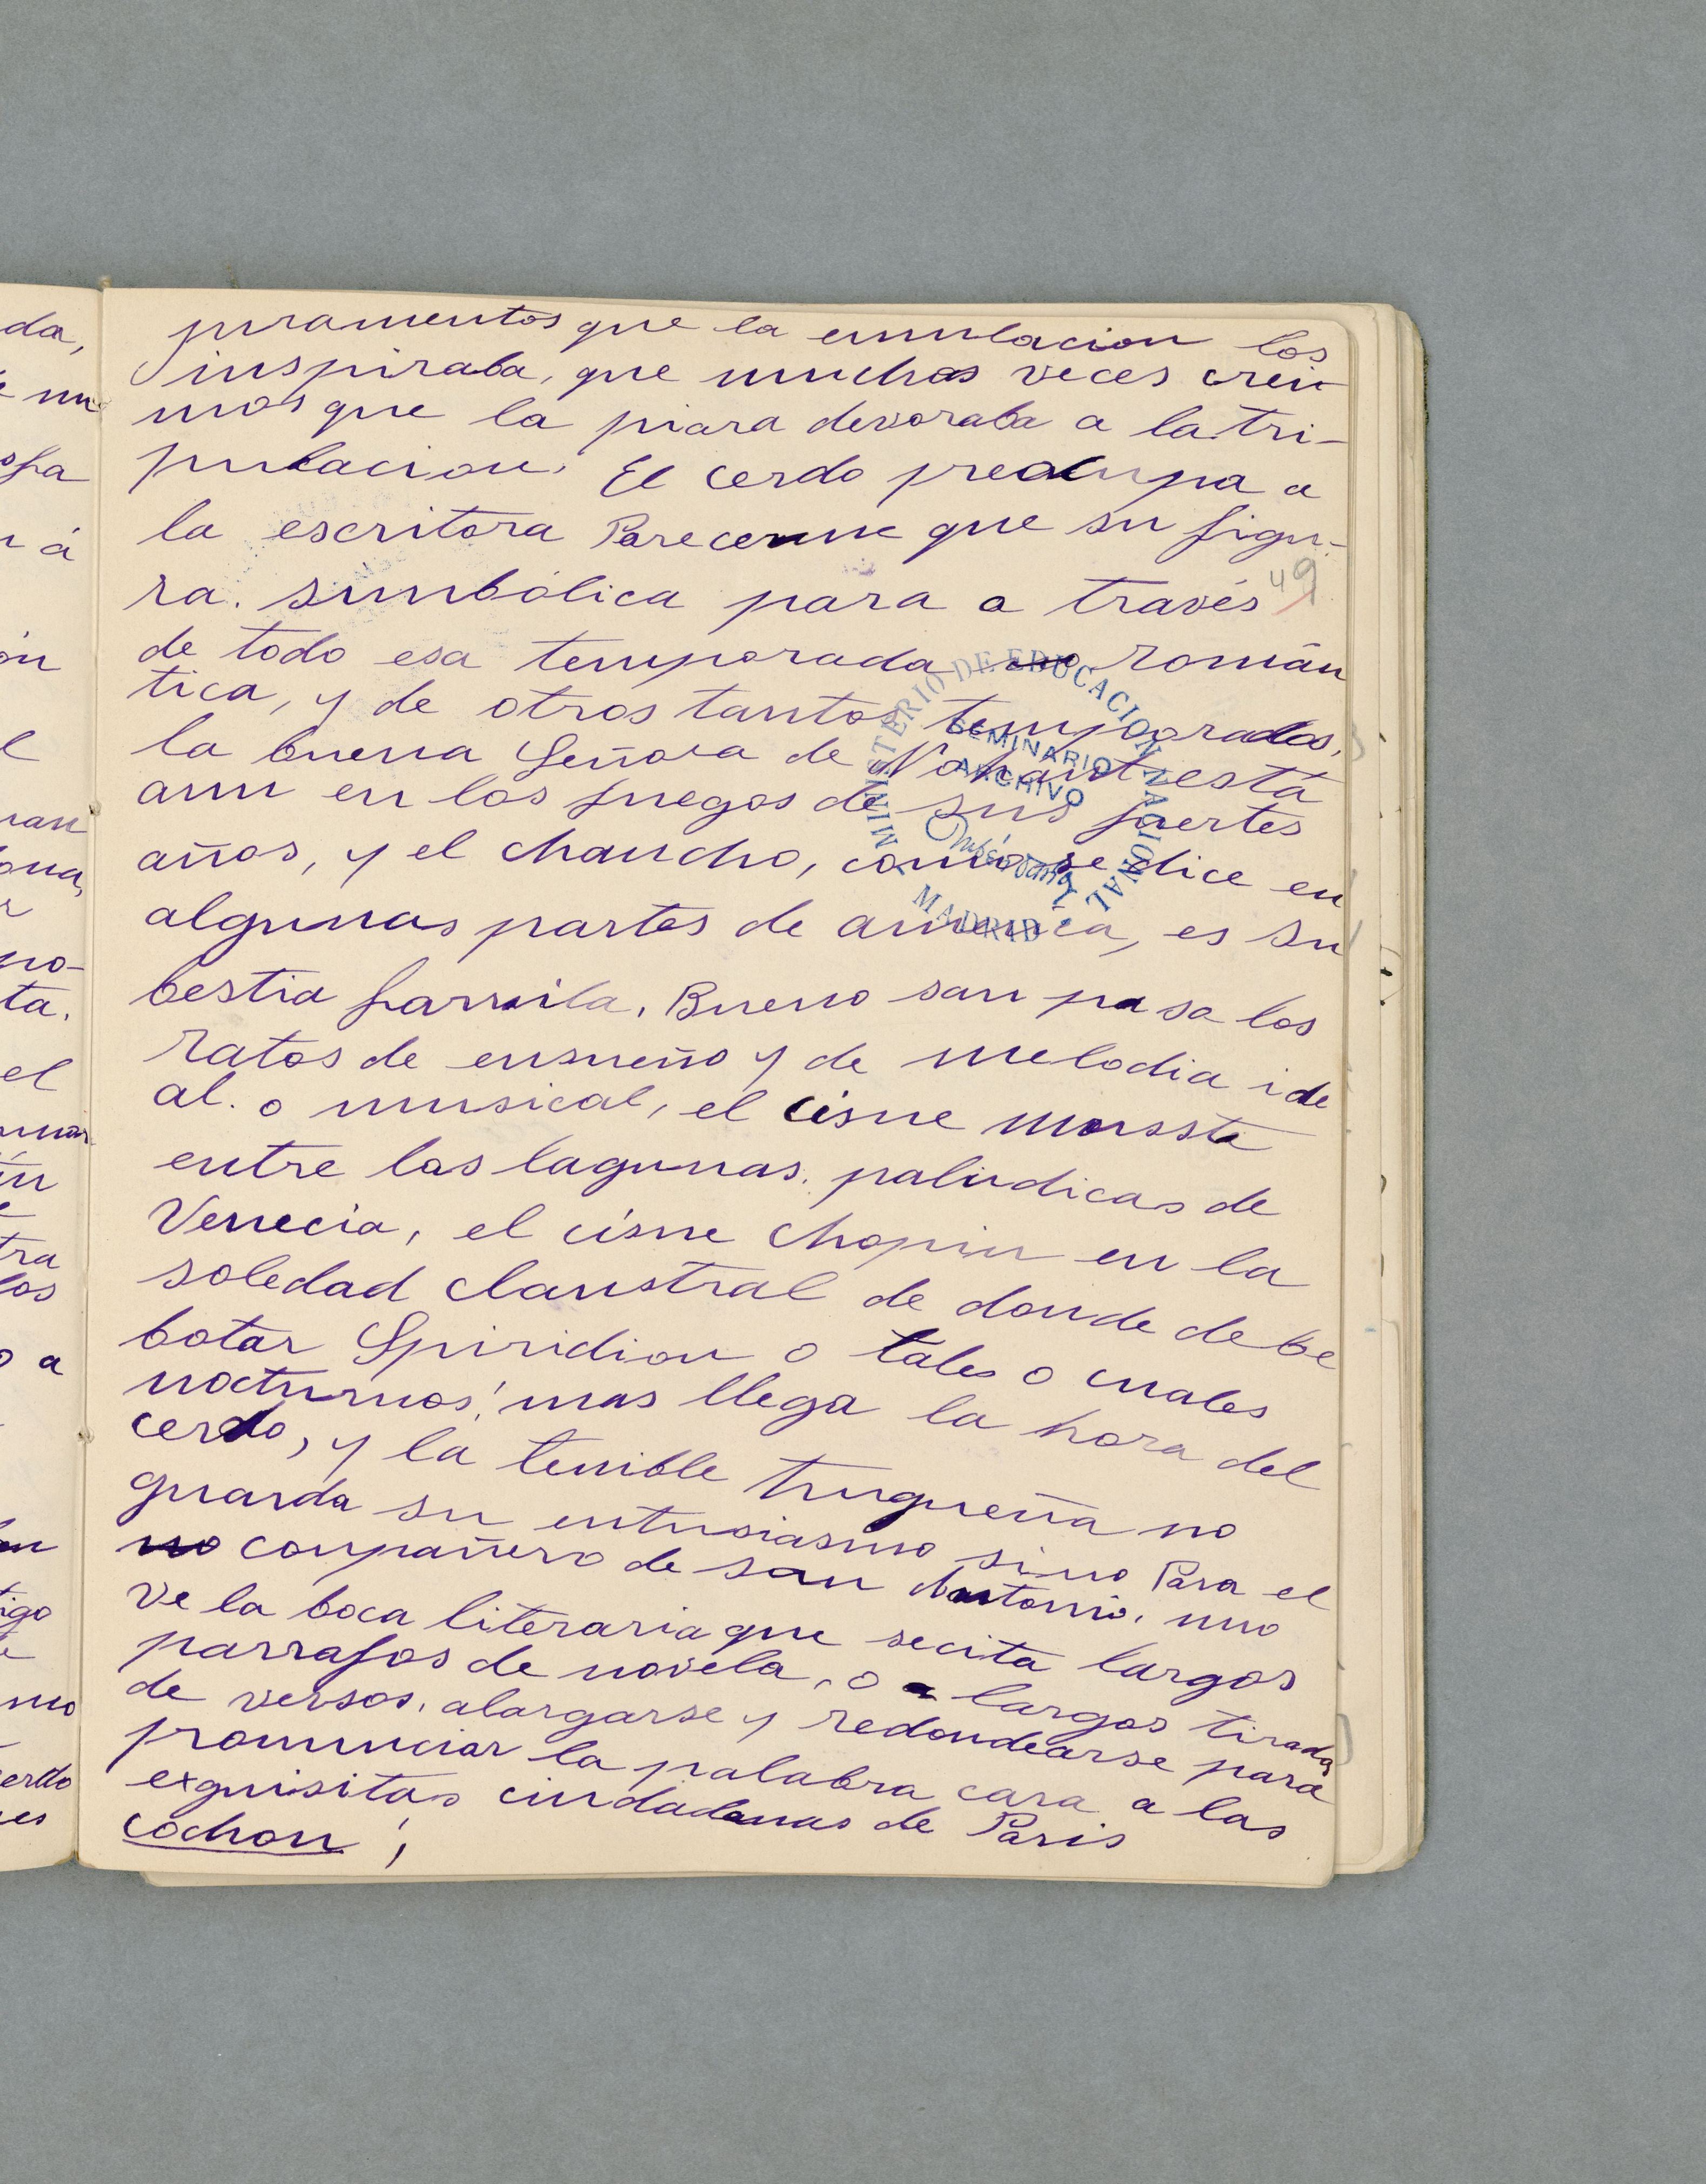 juramentos que la emulacion los
inspiraba, que muchas veces creia
mos que la piara devoraba a la tri-
pulacion. El cerdo preocupa a
la escritora Pareceme que su figu-
ra. simbólica para a través
49
de todo esa temporada román
tica, y de otros tantos temporadas,
la buena Señora de Nohant está
aun en los fuegos de sus fuertes
años, y el chancho, como se dice en
algunas partes de america, es su
bestia farrila. Bueno san pasa los
ratos de ensueño y de melodia ide
al. o musical, el cisne Mussete
entre las lagunas. paludicas de
Venecia, el cisne Chopin en la
soledad claustral de donde debe
botar Spiridion o tales o cuales
nocturnos! mas llega la hora del
cerdo, y la terrible trugueña no
guarda su entusiasmo sino Para el
compañero de san Antonio. uno
ve la boca literaria que recita largos
parrafos de novela, o largos tiradas
de versos, alargarse y redondearse para
pronunciar la palabra cara a las
exquisitas ciudadanas de Paris
cochon!
MINISTERIO DE EDUCACION NACIONAL
SEMINARIO
ARCHIVO
MADRID
da,
el
po-
ta.
tra
los
o a
tigo
mo
cerdo